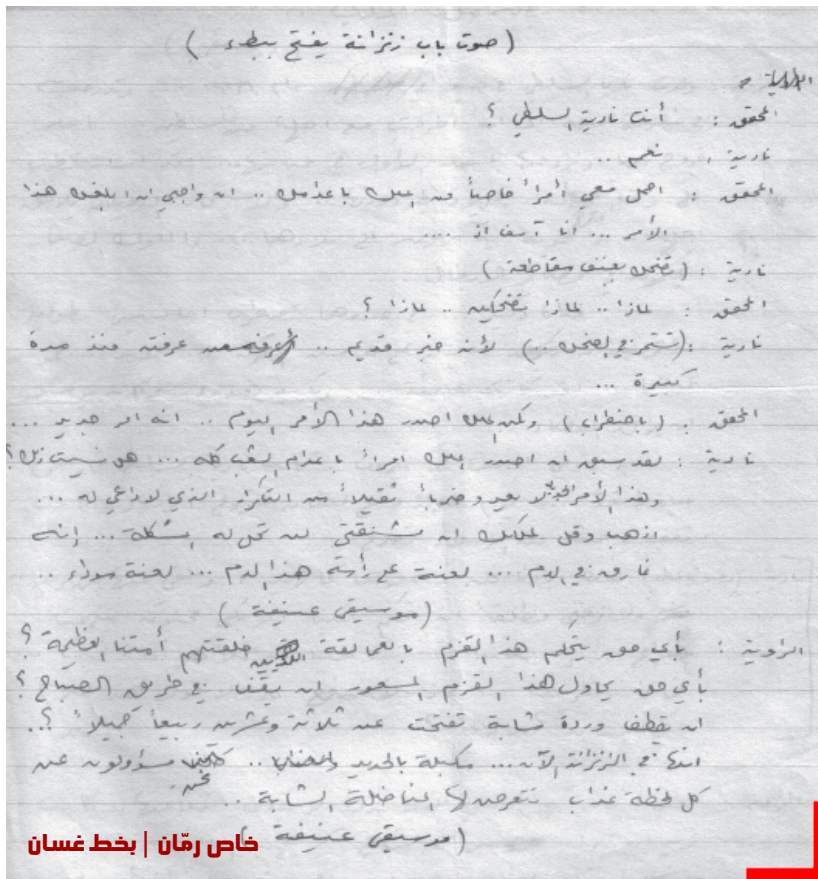 (صوت باب زنزانة يفتح ببطء)
المحقق: أنت نادية السلطي؟
نادية: نعم..
المحقق: احمل معي أمراً خاصاً من الملك باعدامك.. ان واجبي ان ابلغك هذا
الأمر... أنا آسف اذ....
نادية: (تضحك بعنف مقاطعة)
المحقق: لماذا.. لماذا تضحكين.. لماذا؟
نادية: (تستمر في الضحك..) لأنه خبر قديم.. عرفته منذ مدة
كبيرة...
المحقق: (باضطراب) ولكن الملك اصدر هذا الأمر اليوم.. انه امر جديد...
نادية: لقد سبق ان اصدر الملك امراً باعدام الشعب كله... هل نسيت ذلك؟
وهذا الأمر الجديد لا يعدو ضرباً ثقيلاً من التكرار الذي لا داعي له...
اذهب وقل لملكك ان مشنقتي لن تحل له المشكلة... إنه
غارق في الدم... لعنة على رأسه هذا الدم... لعنة سوداء..
(موسيقى عنيفة)
الراوية: بأي حق يتحكم هذا القزم بالعمالقة الذين خلقتهم أمتنا العظيمة؟
بأي حق يحاول هذا القزم المسعور ان يقف في طريق الصباح؟
ان يقطف وردة شابة تفتحت عن ثلاثة وعشرين ربيعاً جميلاً؟..
انها في الزنزانة الآن... مكبلة بالحديد.. نحن مسؤولون عن
كل لحظة عذاب تتعرض لها المناضلة الشابة..
(موسيقى عنيفة)
خاص رمّان | بخط غسان